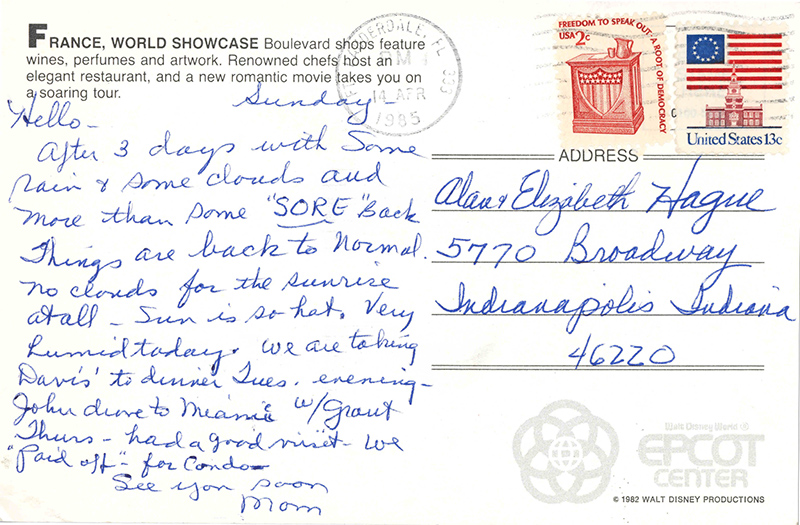 FRANCE, WORLD SHOWCASE Boulevard shops feature
wines, perfumes and artwork. Renowned chefs host an
elegant restaurant, and a new romantic movie takes you on
a soaring tour.
Sunday -
Hello -
After 3 days with some
rain & some clouds and
more than some "SORE" Back
Things are back to Normal.
No clouds for the sunrise
at all - Sun is so hot. Very
humid today. We are taking
Davis' to dinner Tues. evening -
John drove to Miami w/Grant
Thurs - had a good visit - We
"Paid off" - for Condo
See you soon
Mom
LAUDERDALE, FL
PM
14 APR
1985
FREEDOM TO SPEAK OUT - A ROOT OF DEMOCRACY
USA 2c
United States 13c
ADDRESS
Alan & Elizabeth Hague
5770 Broadway
Indianapolis Indiana
46220
Walt Disney World ®
EPCOT
CENTER
© 1982 WALT DISNEY PRODUCTIONS